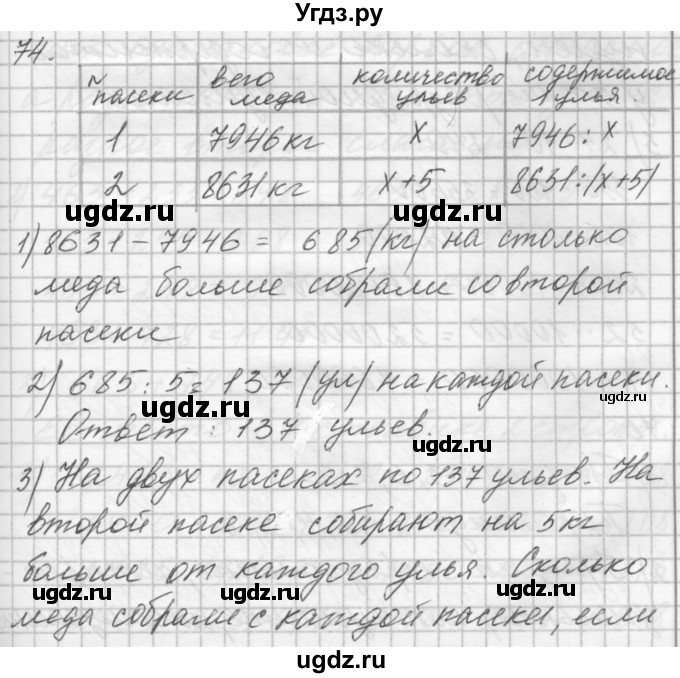 Угдз.ру
74.
№ пасеки вего меда количество ульев содержимое 1 улья.
1 7946 кг х 7946 : х
2 8631 кг х+5 8631:(х+5)
ugdz.ru ugdz.ru
1) 8631 – 7946 = 685 (кг) на столько
меда больше собрали со второй
ugdz.ru ugdz.ru
пасеки
2) 685 : 5 = 137 (ул) на каждой пасеки.
ugdz.ru ugdz.ru
Ответ : 137 ульев.
ugdz.ru
3) На двух пасеках по 137 ульев. На
ugdz.ru
второй пасеке собирают на 5 кг
ugdz.ru
больше от каждого улья. Сколько
ugdz.ru
меда собрали с каждой пасеки, если
ugdz.ru
ugdz.ru